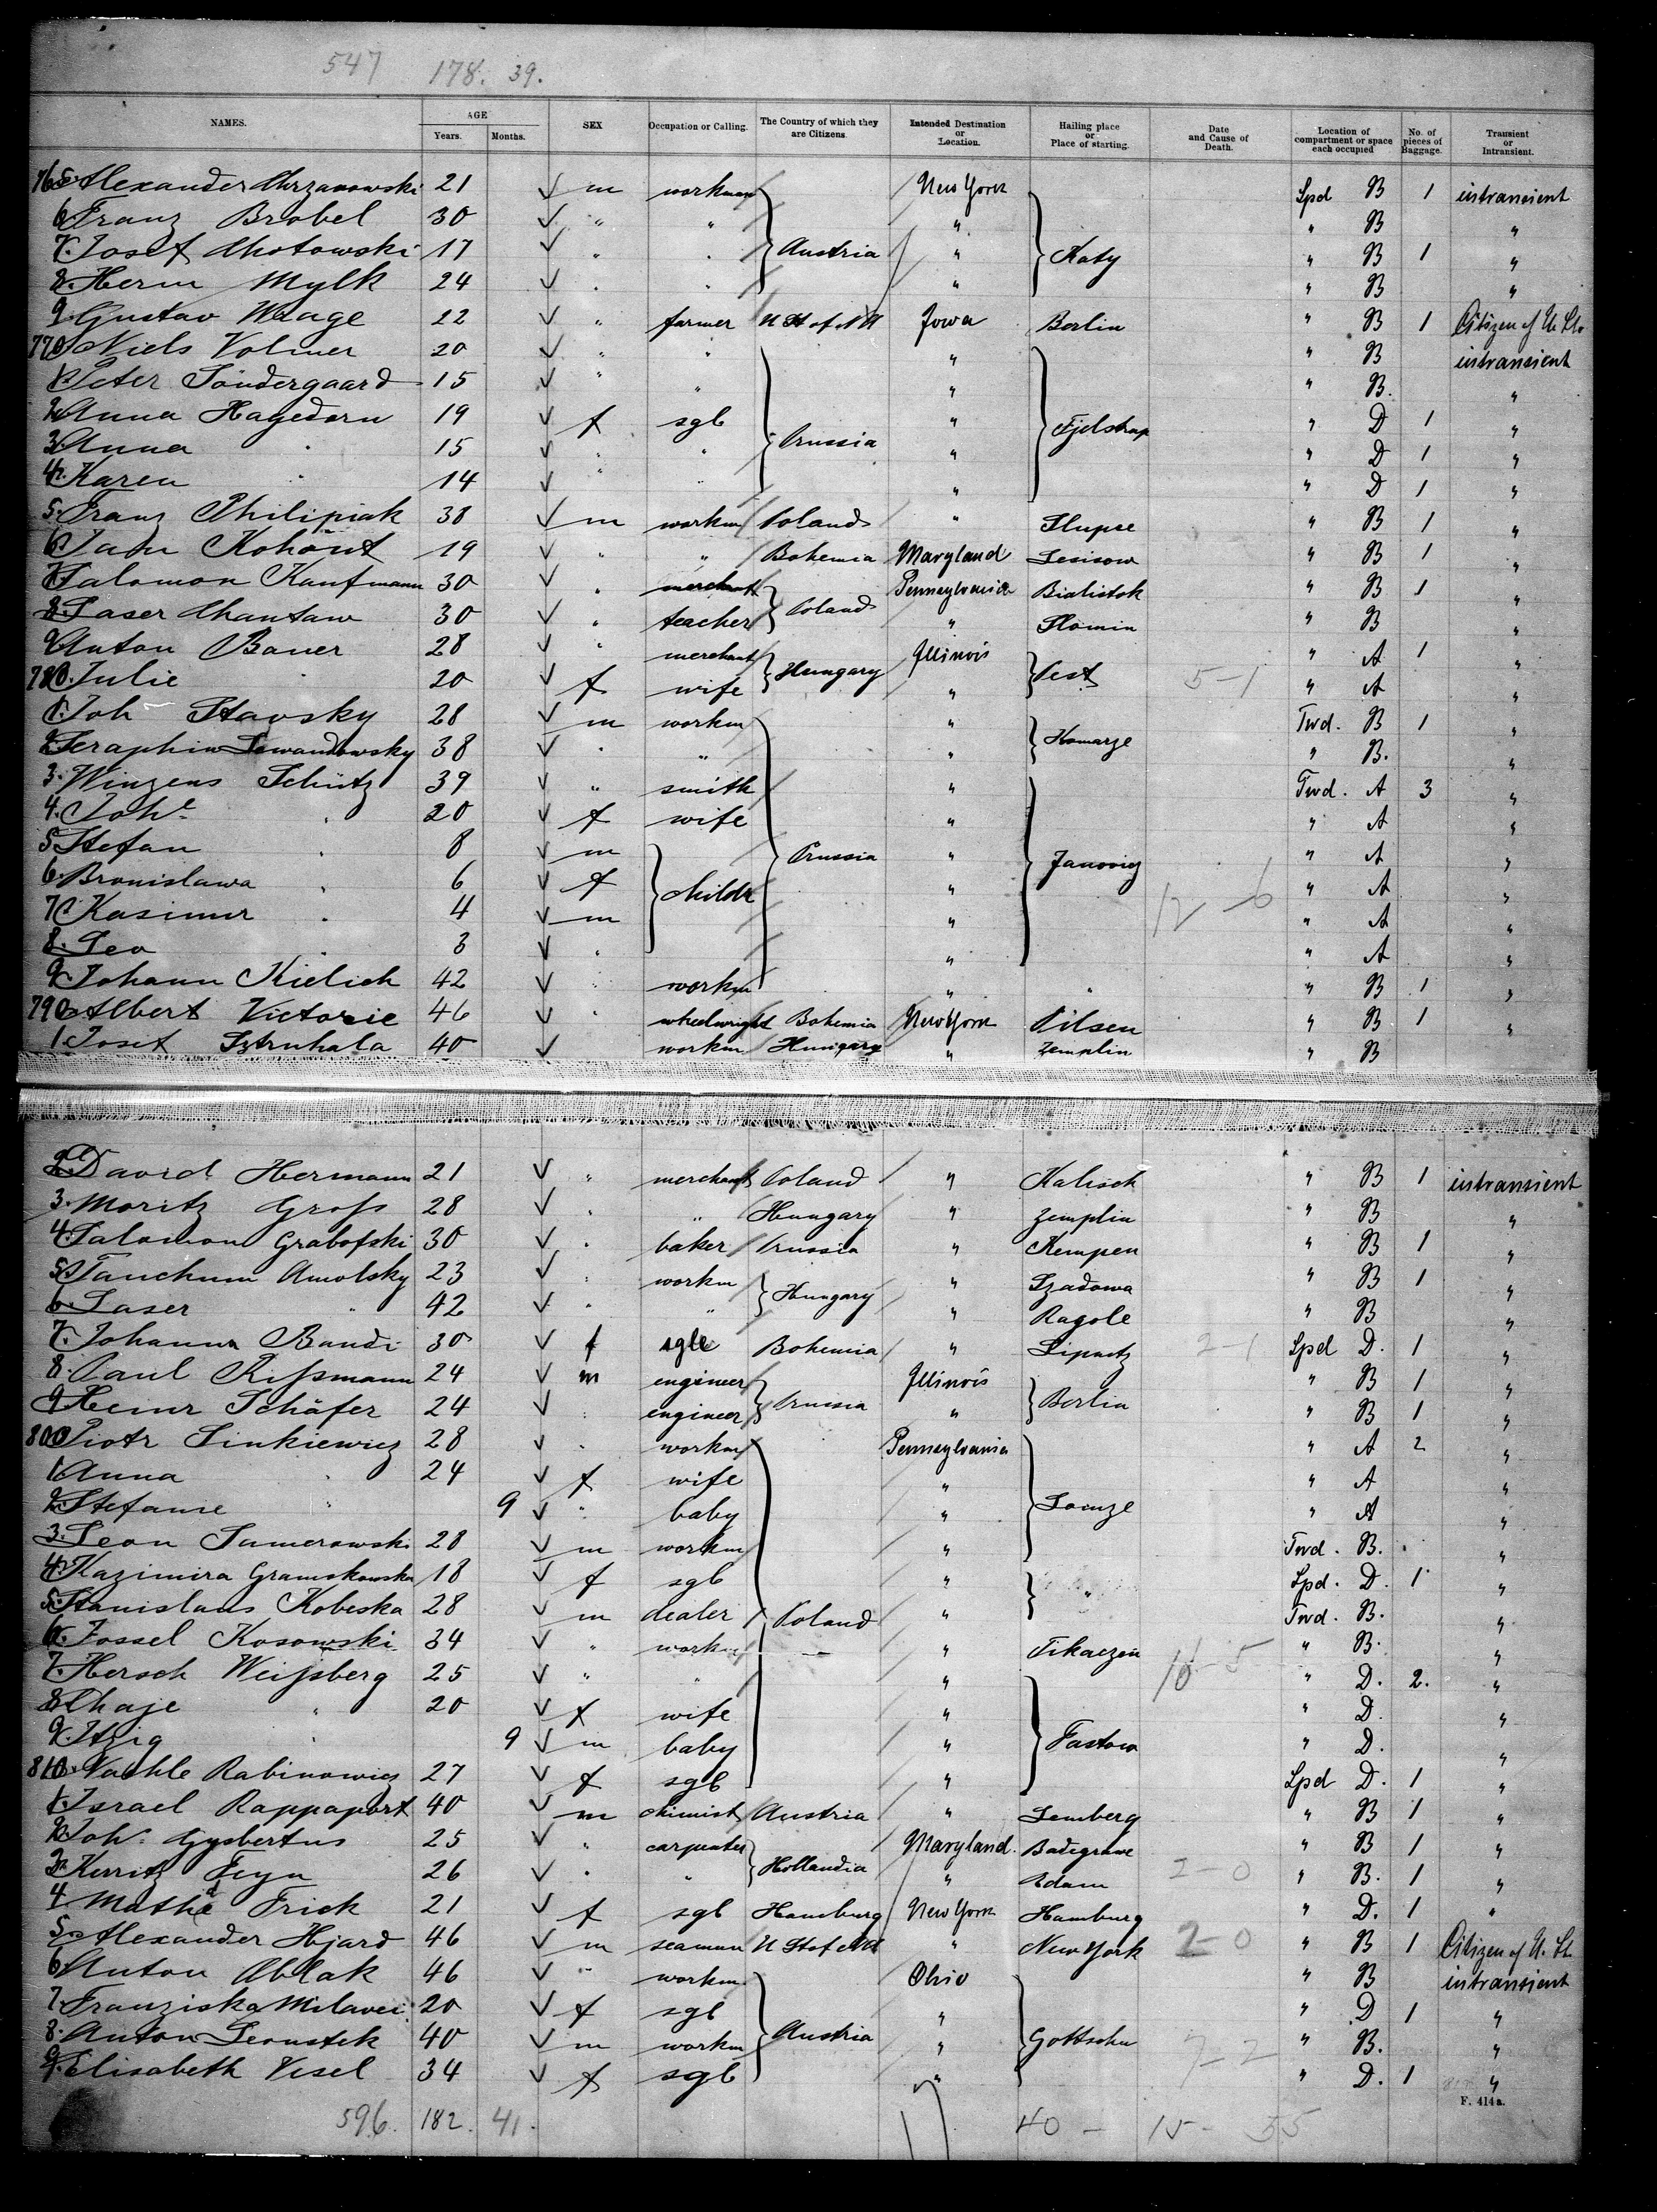 547 178. 39.
NAMES. AGE Years. Months. SEX Occupation or Calling. The Country of which they are Citizens. Intended Destination or Location. Hailing place or Place of starting. Date and Cause of Death. Location of compartment or space each occupied No. of pieces of Baggage. Transient or Intransient.
765. Alexander Chrzanowski 21 √ m workman New York Spd B 1 intransient
6 Franz Brobel 30 √ " " " " B "
7. Josef Chotowski 17 √ " " Austria " Katy " B 1 "
8. Herm Mylk 24 √ " " " " B "
9. Gustav Waage 22 √ " farmer U St of NA Iowa Berlin " B 1 Citizen of U. St.
770 Niels Volmer 20 √ " " " " B intransient
1. Peter Söndergaard 15 √ " " " " B. "
2 Anna Hagedorn 19 √ f sgl " Fjelstrup " D 1 "
3. Anna " 15 √ " " Prussia " " D 1 "
4. Karen " 14 √ " " " " D 1 "
5. Franz Philipiak 38 √ m workm Poland " Slupce " B 1 "
6. Jan Kohout 19 √ " " Bohemia Maryland " B 1 "
7. Salomon Kaufmann 30 √ " merchant Pennsylvania Bialistok " B 1 "
8. Laser Chantaw 30 √ " teacher Poland " Slomin " B "
9 Anton Bauer 28 √ " merchant Illinois " A 1 "
780. Julie " 20 √ f wife Hungary " Pest 5-1 " A "
1. Joh Stavsky 28 √ m workm " Twd. B 1 "
2. Seraphin Lewandowsky 38 √ " " " Komarze " B. "
3. Winzens Schütz 39 √ " smith " Twd. A 3 "
4. Johe " 20 √ f wife " " A "
5 Stefan " 8 √ m Prussia " Janoviz " A "
6. Bronislawa " 6 √ f childr " " A "
7 Kasimir " 4 √ m " 12-6 " A "
8. Leo " 3 √ " " " A "
9. Johann Kielich 42 √ " workm " " " B 1 "
790 Albert Victorie 46 √ " wheelwright Bohemia New York Pilsen " B 1 "
1. Josef Sztruhala 40 √ workm Hungary " Zemplin " B
2. David Hermann 21 √ " merchant Poland " Kalisch " B 1 intransient
3. Moritz Groß 28 √ " " Hungary " Zemplin " B "
4. Salomon Grabofski 30 √ " baker Prussia " Kempen " B 1 "
5. Tanchum Amolsky 23 √ " workm " Szadowa " B 1 "
6. Laser " 42 √ " " Hungary " Ragole " B "
7. Johanna Bandi 30 √ f sgle Bohemia " 2-1 Spd D. 1 "
8. Paul Rißmann 24 √ m engineer Illinois " B 1 "
9 Heinr Schäfer 24 √ " engineer Prussia " Berlin " B 1 "
800 Piotr Sinkiewicz 28 √ " workm Pennsylvania " A 2 "
1. Anna " 24 √ f wife " " A "
2. Stefanie " 9 √ " baby " Lomze " A "
3. Leon Sumerowski 28 √ m workm " Twd. B. "
4. Kazimira Gramskowska 18 √ f sgl " " Spd. D. 1 "
5. Stanislaus Kobeska 28 √ m dealer Poland " Twd. B. "
6. Jossel Kosowski 34 √ " workm " " B. "
7. Hersch Weißberg 25 √ " " " 16-5 " D. 2. "
8 Chaje " 20 √ f wife " " D. "
9. Itzig " 9 √ m baby " Fastow " D. "
810. Nachle Rabinowicz 27 √ f sgl " Spd D. 1 "
1. Israel Rappaport 40 √ m chimist Austria " Lemberg " B 1 "
2. Joh. Gysbertus 25 √ " carpenter Maryland. " B 1 "
3. Kerritz Feyn 26 √ " " Hollandia " 2-0 " B. 1 "
4 Mathe Frick 21 √ f sgl Hamburg New York Hamburg " D. 1 "
5. Alexander Hjard 46 √ m seaman U St of NA " New York 2-0 " B 1 Citizen of U. St.
6 Anton Oblak 46 √ " workm Ohio " B intransient
7. Franziska Milavei 20 √ f sgl " " D 1 "
8. Anton Leoustek 40 √ m workm Austria " Gottschu 7-2 " B. "
9. Elisabeth Vesel 34 √ f sgl " " D. 1 "
F. 414a.
596. 182. 41. 40 - 15 - 55